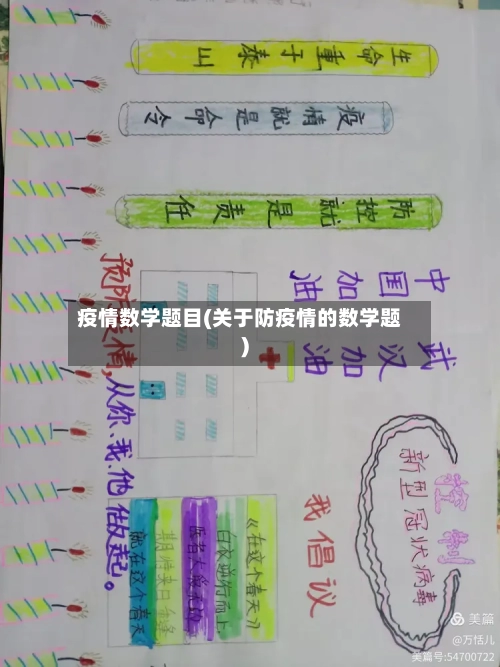 生命重于泰山
疫情就是命令
防控就是责任
中国加油
武汉加油
疫情数学题目(关于防疫情的数学题
)
预防疫情,从你、我、他做起。
新型冠状病毒
我倡议
《在这个春天》
白衣逆行而上
就在这个春天
美篇
@万恬儿
美篇号:54700722